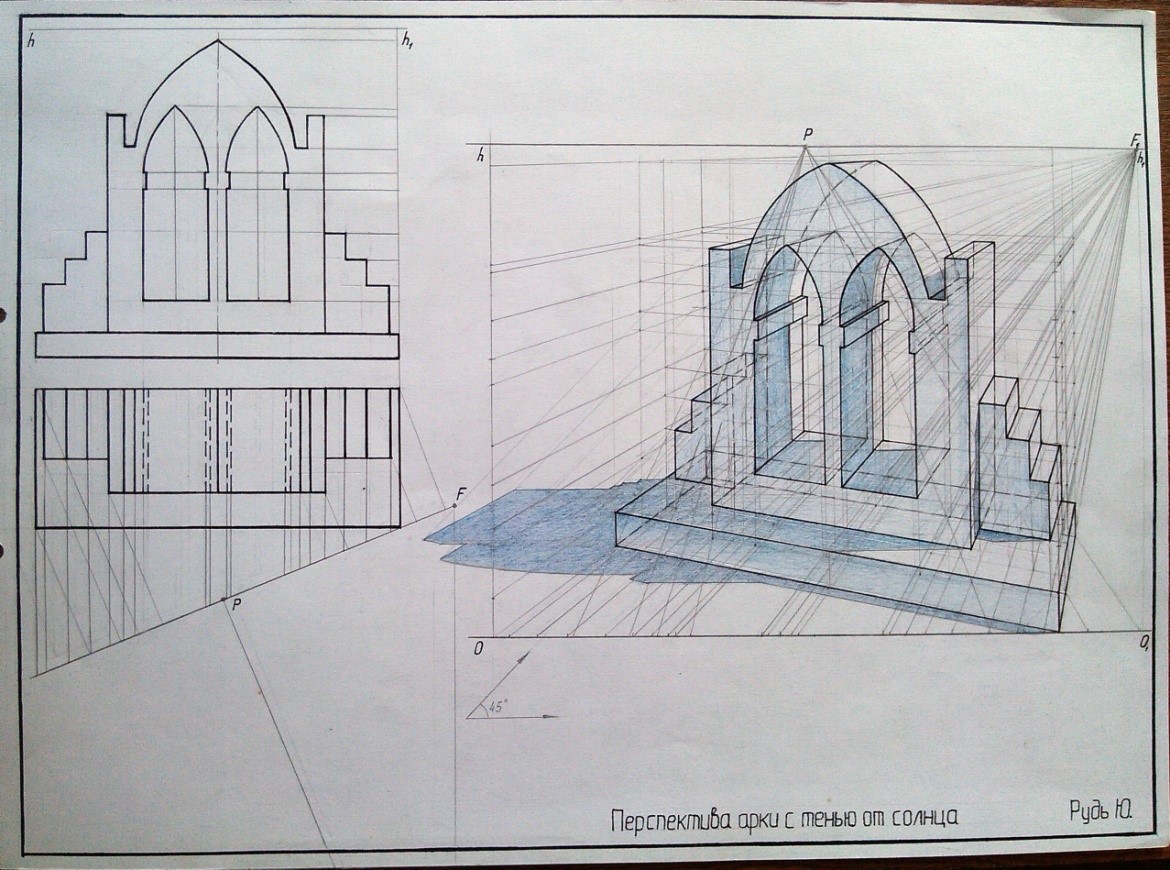 h
h₁
F
P
P
F₁
h
h₁
O
O₁
45°
Перспектива арки с тенью от солнца
Рудь Ю.